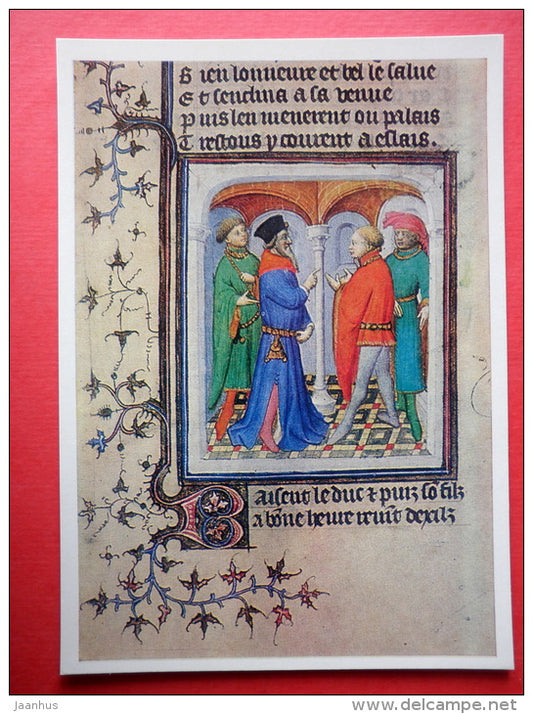 Bien lonneure et bel le salue
Et sendina a sa venue
Puis len menerent ou palais
Trestous y courent a eslais.
Baisent le duc & puiz so filz
a bone heure revit dexilz
jaanhus
www.delcampe.net